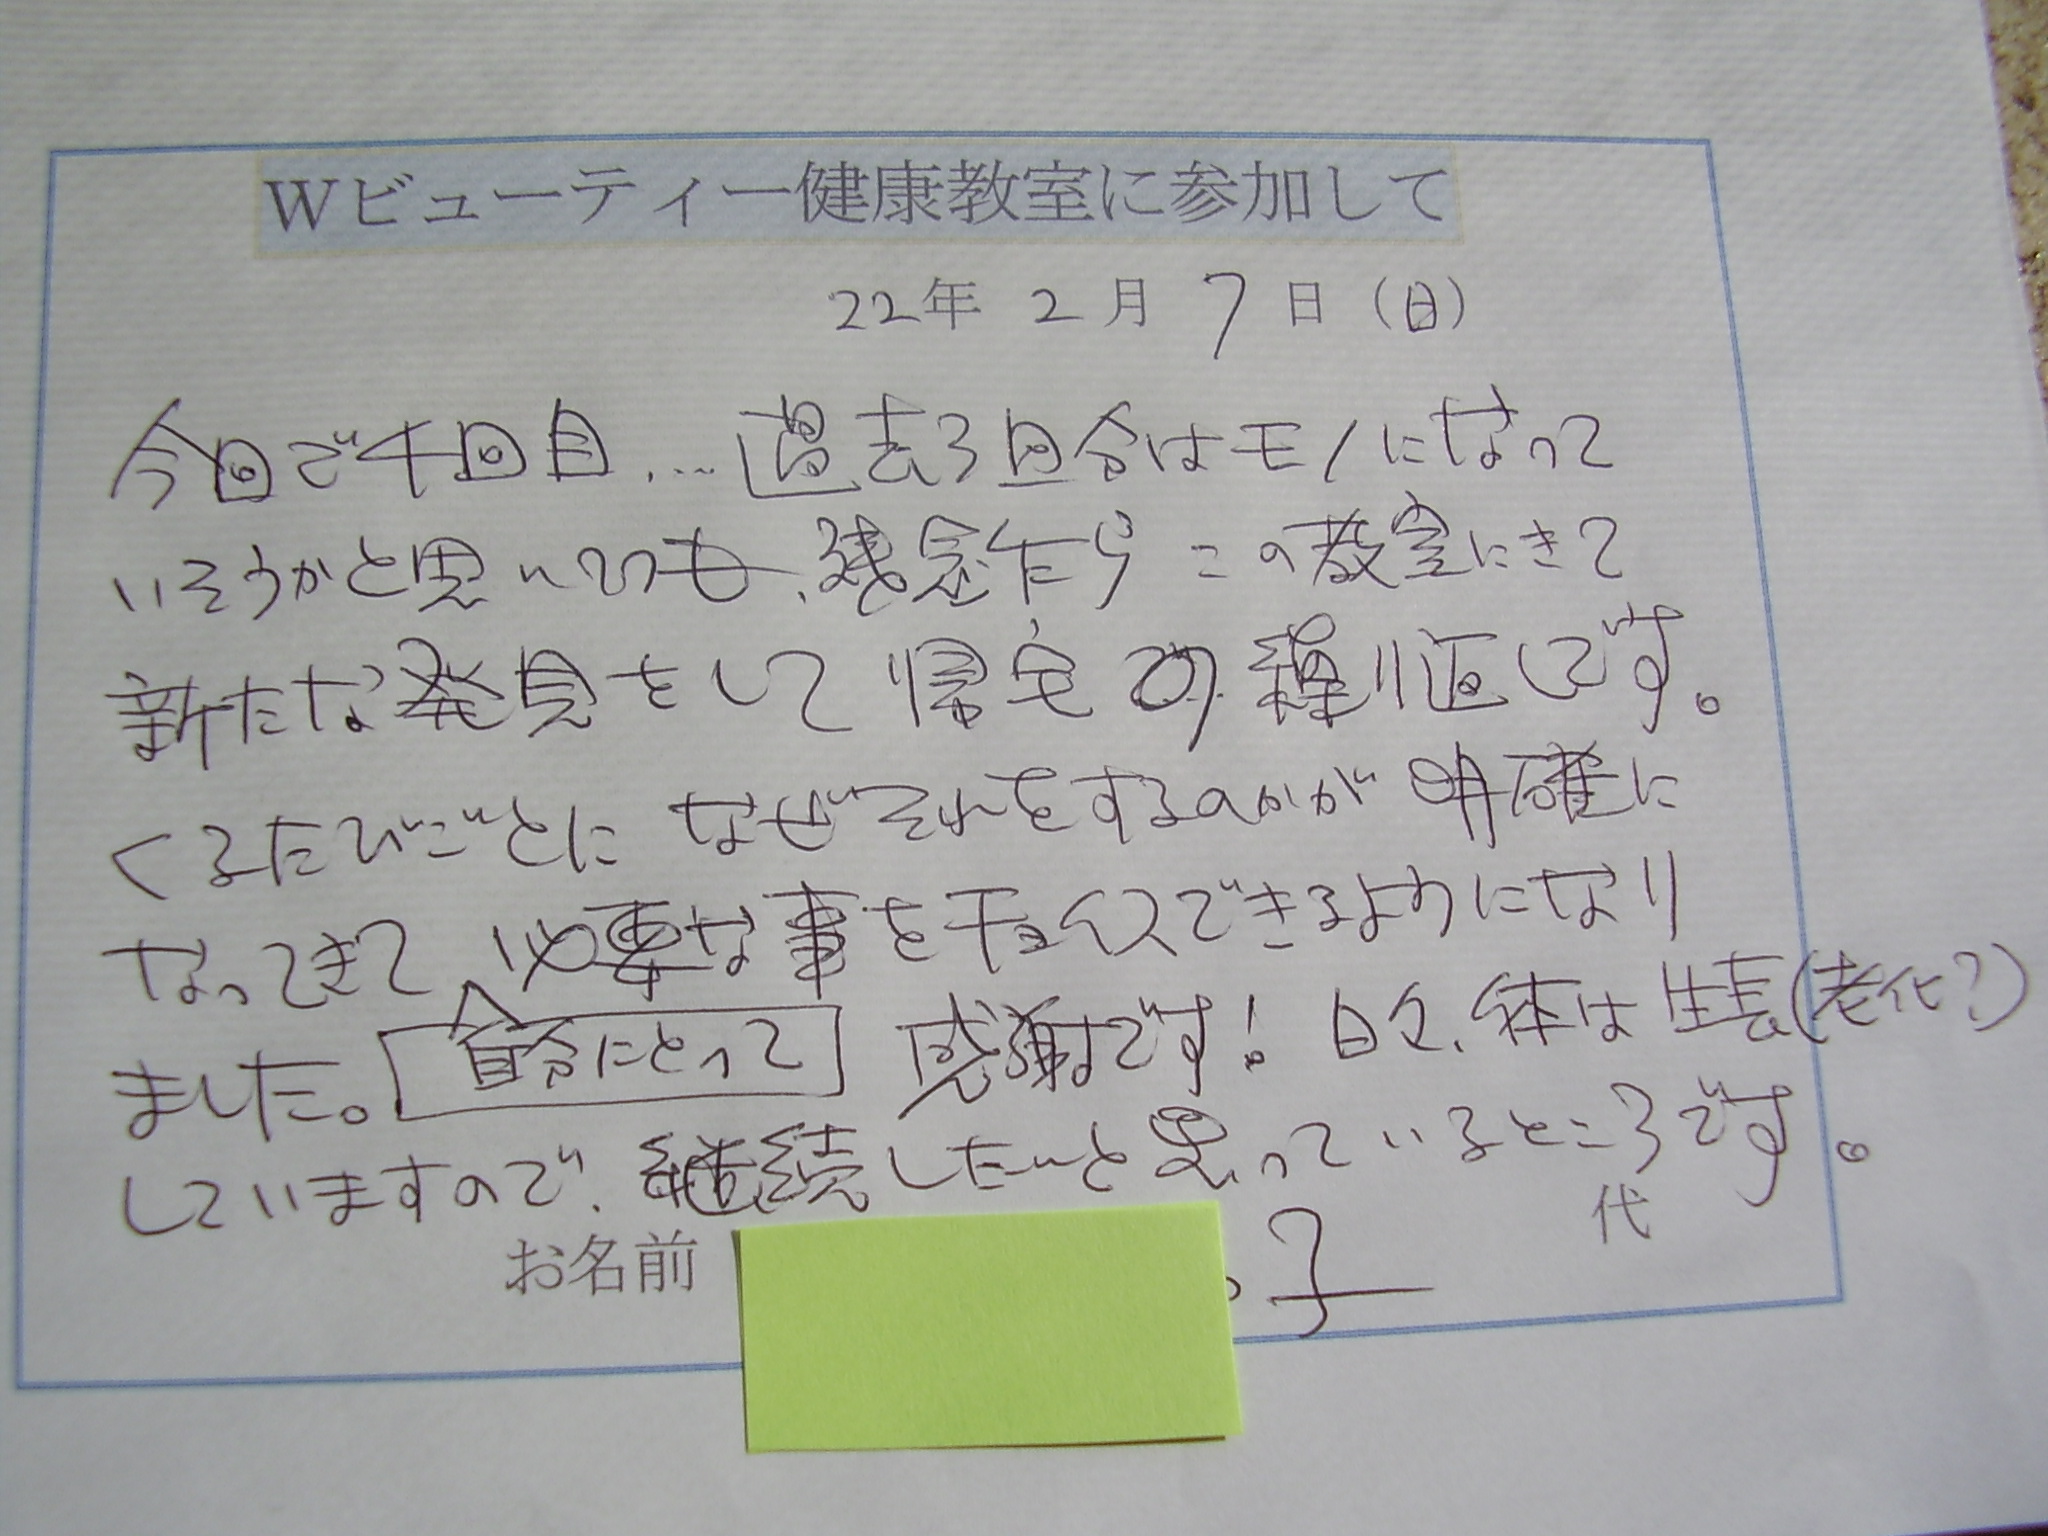 Wビューティー健康教室に参加して
22年 2月 7日 (日)
今回で4回目...過去3回分はモノになって
いそうかと思いつつも、残念乍らこの教室にきて
新たな発見をして帰宅の繰り返しです。
くるたびごとになぜそれをするのかが明確に
なってきて必要な事をチョイスできるようになり
ました。自分にとって 感謝です!日々、体は生長(老化?)
していますので、継続したいと思っているところです。
お名前 子 代